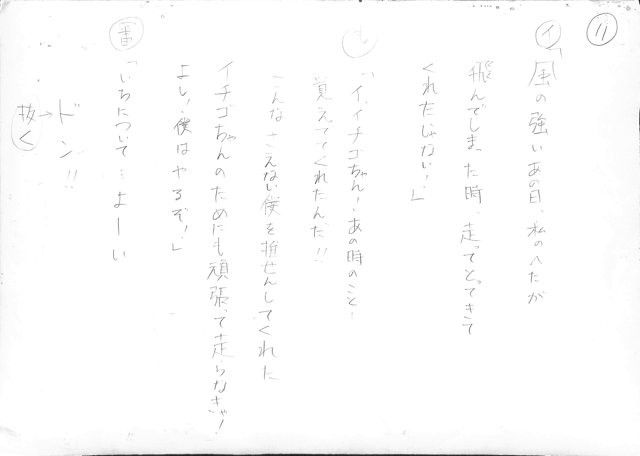 11
イ「風の強いあの日、私のへたが
飛んでしまった時、走ってとってきて
くれたじゃない!」
し「イ、イチゴちゃん!あの時のこと!
覚えててくれたんだ!!
こんなさえない僕を推せんしてくれた
イチゴちゃんのためにも頑張って走らなきゃ!
よし!僕はやるぞ!」
番「いちについて…よーい
ドン!!
→抜く